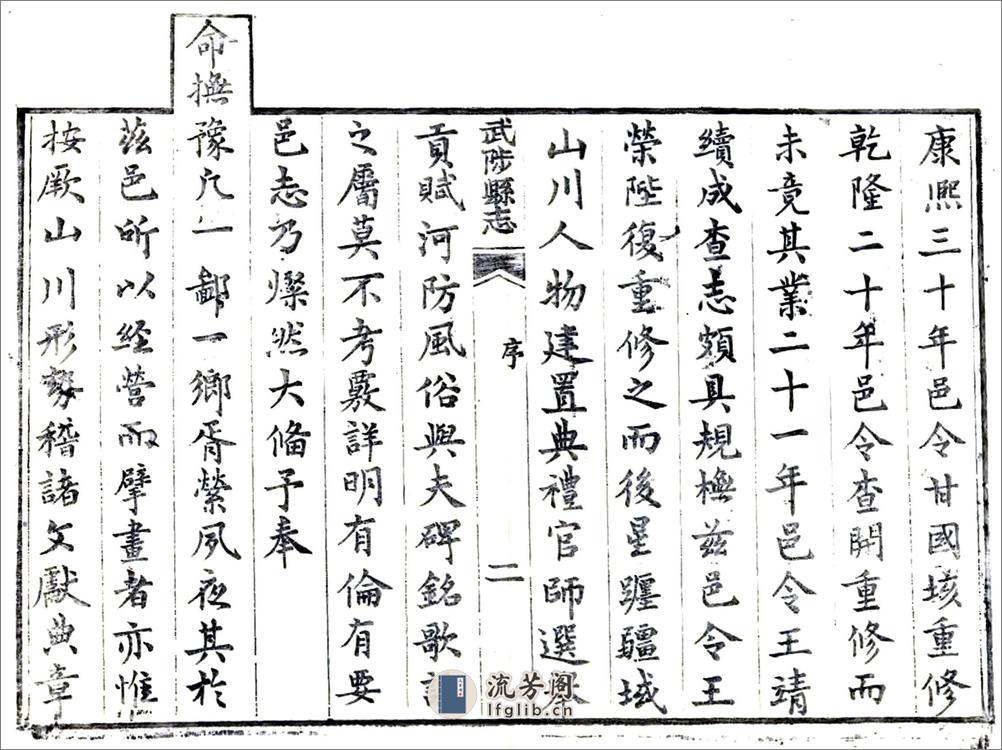 康熙三十年邑令甘國垓重修
乾隆二十年邑令查開重修而
未竟其業二十一年邑令王靖
續成查志頗具規橅茲邑令王
榮陛復重修之而後星躔疆域
山川人物建置典禮官師選
武陟縣志
序
二
貢賦河防風俗與夫碑銘歌
之屬莫不考覈詳明有倫有要
邑志乃燦然大備予奉
命撫豫凡一鄙一鄉胥縈夙夜其於
茲邑所以經營而擘畫者亦惟
按厥山川形勢稽諸文獻典章
流芳阁
lfglib.cn